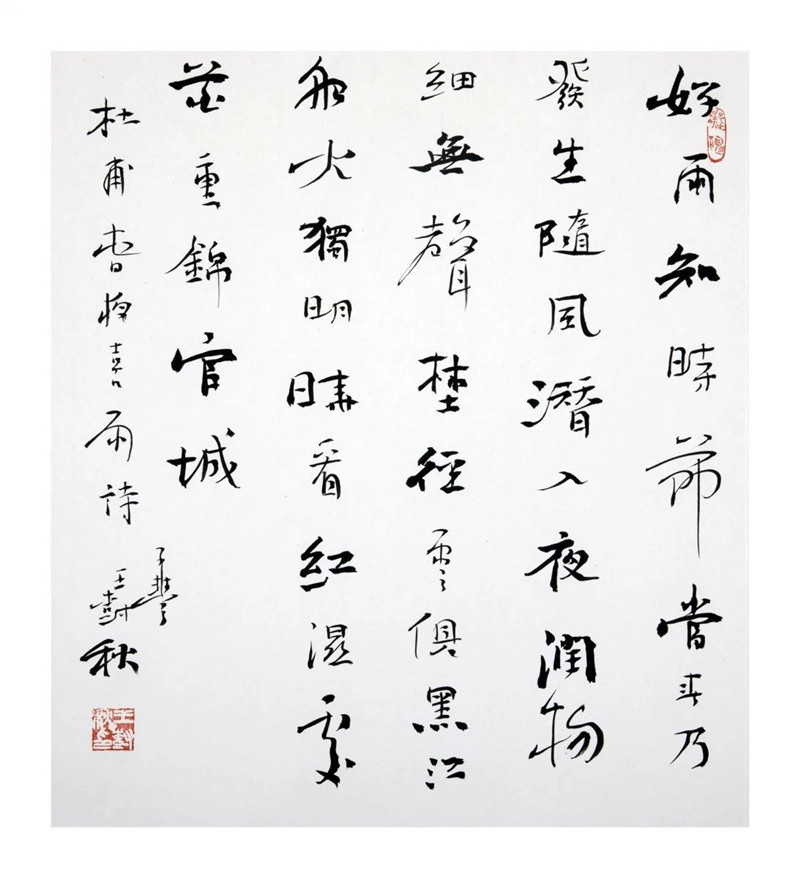 好雨知時節當春乃
發生隨風潛入夜潤物
細無聲埜徑雲俱黑江
船火獨明曉看紅濕處
花重錦官城
杜甫春夜喜雨詩
王 秋